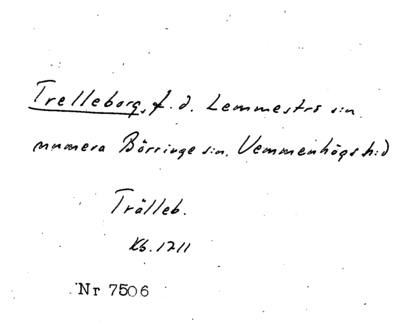 Trelleborg, f.d. Lemmeströ s:n
numera Börringe s:n. Vemmenhögs h:d
Trälleb.
Kb. 1711
Nr 7506